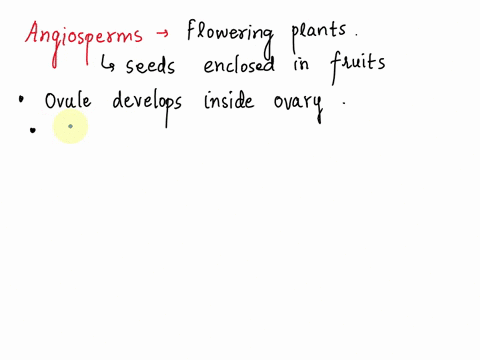 Angiosperms → flowering plants.
↳ seeds enclosed in fruits
• Ovule develops inside ovary.
•